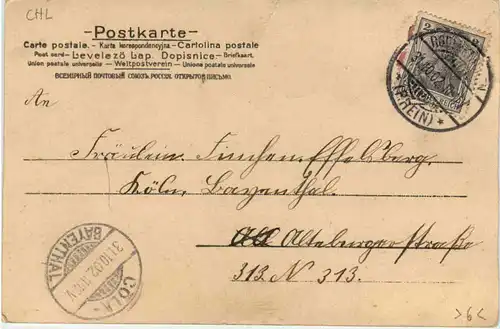 CHL
Postkarte
Carte postale. - Karta korespondencyjna - Cartolina postale
Post card - Levelező Lap. Dopisnice - Briefkaart.
Union postale universelle - Weltpostverein - Unione postale universale
ВСЕМІРНЫЙ ПОЧТОВЫЙ СОЮЗ. РОССІЯ. ОТКРЫТОЕ ПИСЬМО.
2
31.10.02
(RHEIN)
An
Fräulein Finchen Effelsberg.
Köln Bayenthal.
Alteburger Straße
312 N 313.
CÖLN-
31.10.02
BAYENTHAL
>6<